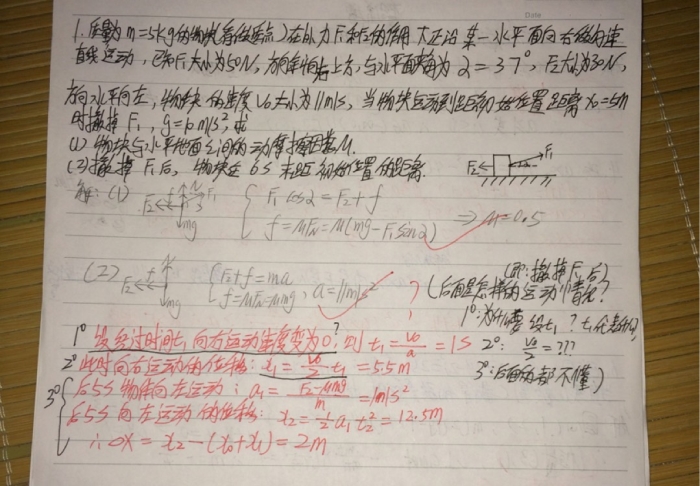 Date
1.质量为m=5kg的物块(看作质点)在外力F₁和F₂的作用下正沿某一水平面向右做匀速
直线运动,已知F₁大小为50N,方向斜向右上方,与水平面夹角为α=37°,F₂大小为30N,
方向水平向左,物块的速度v₀大小为11m/s,当物块运动到距初始位置距离x₀=5m
时撤掉F₁,g=10m/s²,求
(1)物块与水平地面之间的动摩擦因数μ.
(2)撤掉F₁后,物块在6s末距初始位置的距离.
F₂ F₁
解:(1) F₂ f N F₁ mg
F₁cosα=F₂+f
f=μFN=μ(mg-F₁sinα)
⇒μ=0.5
(2) F₂ f mg
F₂+f=ma
f=μFN=μmg, a=11m/s²
(即:撤掉F₁后)
(后面是怎样的运动情况?
?
1°:为什么要设t₁?t₁代表什么
1° 设经过时间t₁向右运动速度变为0,则t₁=v₀/a=1S
?
2°: v₀/2=???
2° 此时向右运动的位移:x₁=v₀/2 t₁=5.5m
3°:后面的都不懂)
3° 后5S物体向左运动;a₁=F₂-μmg/m=1m/s²
后5S向左运动的位移:x₂=1/2a₁t₂²=12.5m
∴△X=x₂-(x₀+x₁)=2m